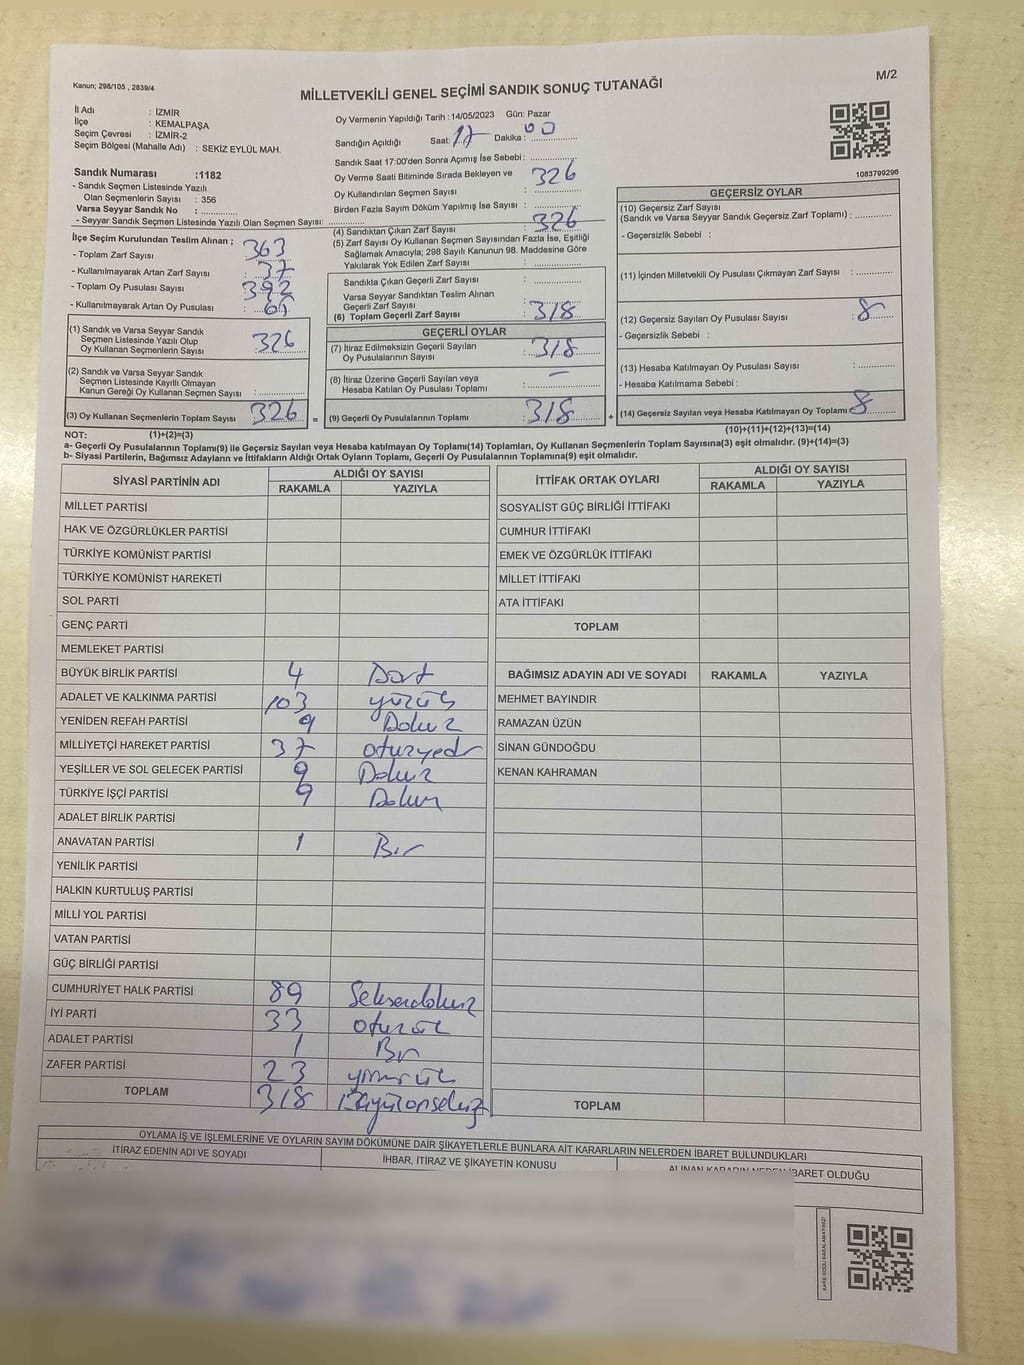 Kanun; 298/105 , 2839/4
M/2
MİLLETVEKİLİ GENEL SEÇİMİ SANDIK SONUÇ TUTANAĞI
İl Adı : İZMİR
İlçe : KEMALPAŞA
Seçim Çevresi : İZMİR-2
Seçim Bölgesi (Mahalle Adı) : SEKİZ EYLÜL MAH.
Oy Vermenin Yapıldığı Tarih :14/05/2023 Gün: Pazar
Sandığın Açıldığı Saat: 17 Dakika : 00
Sandık Saat 17:00'den Sonra Açımış İse Sebebi:
Oy Verme Saati Bitiminde Sırada Bekleyen ve
Oy Kullandırılan Seçmen Sayısı : 326
Birden Fazla Sayım Döküm Yapılmış İse Sayısı :
1083799296
Sandık Numarası :1182
- Sandık Seçmen Listesinde Yazılı
Olan Seçmenlerin Sayısı : 356
Varsa Seyyar Sandık No :
- Seyyar Sandık Seçmen Listesinde Yazılı Olan Seçmen Sayısı:
İlçe Seçim Kurulundan Teslim Alınan ;
- Toplam Zarf Sayısı : 363
- Kullanılmayarak Artan Zarf Sayısı : 37
- Toplam Oy Pusulası Sayısı : 392
- Kullanılmayarak Artan Oy Pusulası :
(1) Sandık ve Varsa Seyyar Sandık
Seçmen Listesinde Yazılı Olup
Oy Kullanan Seçmenlerin Sayısı : 326
(2) Sandık ve Varsa Seyyar Sandık
Seçmen Listesinde Kayıtlı Olmayan
Kanun Gereği Oy Kullanan Seçmen Sayısı :
(3) Oy Kullanan Seçmenlerin Toplam Sayısı : 326 =
(4) Sandıktan Çıkan Zarf Sayısı : 326
(5) Zarf Sayısı Oy Kullanan Seçmen Sayısından Fazla İse, Eşitliği
Sağlamak Amacıyla; 298 Sayılı Kanunun 98. Maddesine Göre
Yakılarak Yok Edilen Zarf Sayısı :
Sandıkta Çıkan Geçerli Zarf Sayısı :
Varsa Seyyar Sandıktan Teslim Alınan
Geçerli Zarf Sayısı :
(6) Toplam Geçerli Zarf Sayısı : 318
GEÇERLİ OYLAR
(7) İtiraz Edilmeksizin Geçerli Sayılan
Oy Pusulalarının Sayısı : 318
(8) İtiraz Üzerine Geçerli Sayılan veya
Hesaba Katılan Oy Pusulası Toplamı : —
(9) Geçerli Oy Pusulalarının Toplamı : 318 +
GEÇERSİZ OYLAR
(10) Geçersiz Zarf Sayısı
(Sandık ve Varsa Seyyar Sandık Geçersiz Zarf Toplamı) :
- Geçersizlik Sebebi :
(11) İçinden Milletvekili Oy Pusulası Çıkmayan Zarf Sayısı :
(12) Geçersiz Sayılan Oy Pusulası Sayısı : 8
- Geçersizlik Sebebi :
(13) Hesaba Katılmayan Oy Pusulası Sayısı :
- Hesaba Katılmama Sebebi :
(14) Geçersiz Sayılan veya Hesaba Katılmayan Oy Toplamı : 8
NOT: (1)+(2)=(3)
(10)+(11)+(12)+(13)=(14)
a- Geçerli Oy Pusulalarının Toplamı(9) ile Geçersiz Sayılan veya Hesaba katılmayan Oy Toplamı(14) Toplamları, Oy Kullanan Seçmenlerin Toplam Sayısına(3) eşit olmalıdır. (9)+(14)=(3)
b- Siyasi Partilerin, Bağımsız Adayların ve İttifakların Aldığı Ortak Oyların Toplamı, Geçerli Oy Pusulalarının Toplamına(9) eşit olmalıdır.
SİYASİ PARTİNİN ADI ALDIĞI OY SAYISI
RAKAMLA YAZIYLA
MİLLET PARTİSİ
HAK VE ÖZGÜRLÜKLER PARTİSİ
TÜRKİYE KOMÜNİST PARTİSİ
TÜRKİYE KOMÜNİST HAREKETİ
SOL PARTİ
GENÇ PARTİ
MEMLEKET PARTİSİ
BÜYÜK BİRLİK PARTİSİ 4 Dört
ADALET VE KALKINMA PARTİSİ 103 yüzüç
YENİDEN REFAH PARTİSİ 9 Dokuz
MİLLİYETÇİ HAREKET PARTİSİ 37 otuzyedi
YEŞİLLER VE SOL GELECEK PARTİSİ 9 Dokuz
TÜRKİYE İŞÇİ PARTİSİ 9 Dokuz
ADALET BİRLİK PARTİSİ
ANAVATAN PARTİSİ 1 Bir
YENİLİK PARTİSİ
HALKIN KURTULUŞ PARTİSİ
MİLLİ YOL PARTİSİ
VATAN PARTİSİ
GÜÇ BİRLİĞİ PARTİSİ
CUMHURİYET HALK PARTİSİ 89 Seksendokuz
İYİ PARTİ 33 otuzüç
ADALET PARTİSİ 1 Bir
ZAFER PARTİSİ 23 yirmiüç
TOPLAM 318 Üçyüzonsekiz
İTTİFAK ORTAK OYLARI ALDIĞI OY SAYISI
RAKAMLA YAZIYLA
SOSYALİST GÜÇ BİRLİĞİ İTTİFAKI
CUMHUR İTTİFAKI
EMEK VE ÖZGÜRLÜK İTTİFAKI
MİLLET İTTİFAKI
ATA İTTİFAKI
TOPLAM
BAĞIMSIZ ADAYIN ADI VE SOYADI RAKAMLA YAZIYLA
MEHMET BAYINDIR
RAMAZAN ÜZÜN
SİNAN GÜNDOĞDU
KENAN KAHRAMAN
TOPLAM
OYLAMA İŞ VE İŞLEMLERİNE VE OYLARIN SAYIM DÖKÜMÜNE DAİR ŞİKAYETLERLE BUNLARA AİT KARARLARIN NELERDEN İBARET BULUNDUKLARI
İTİRAZ EDENİN ADI VE SOYADI İHBAR, İTİRAZ VE ŞİKAYETİN KONUSU ALINAN KARARIN NEDEN İBARET OLDUĞU
KARE KODU KARALAMAYINIZ!